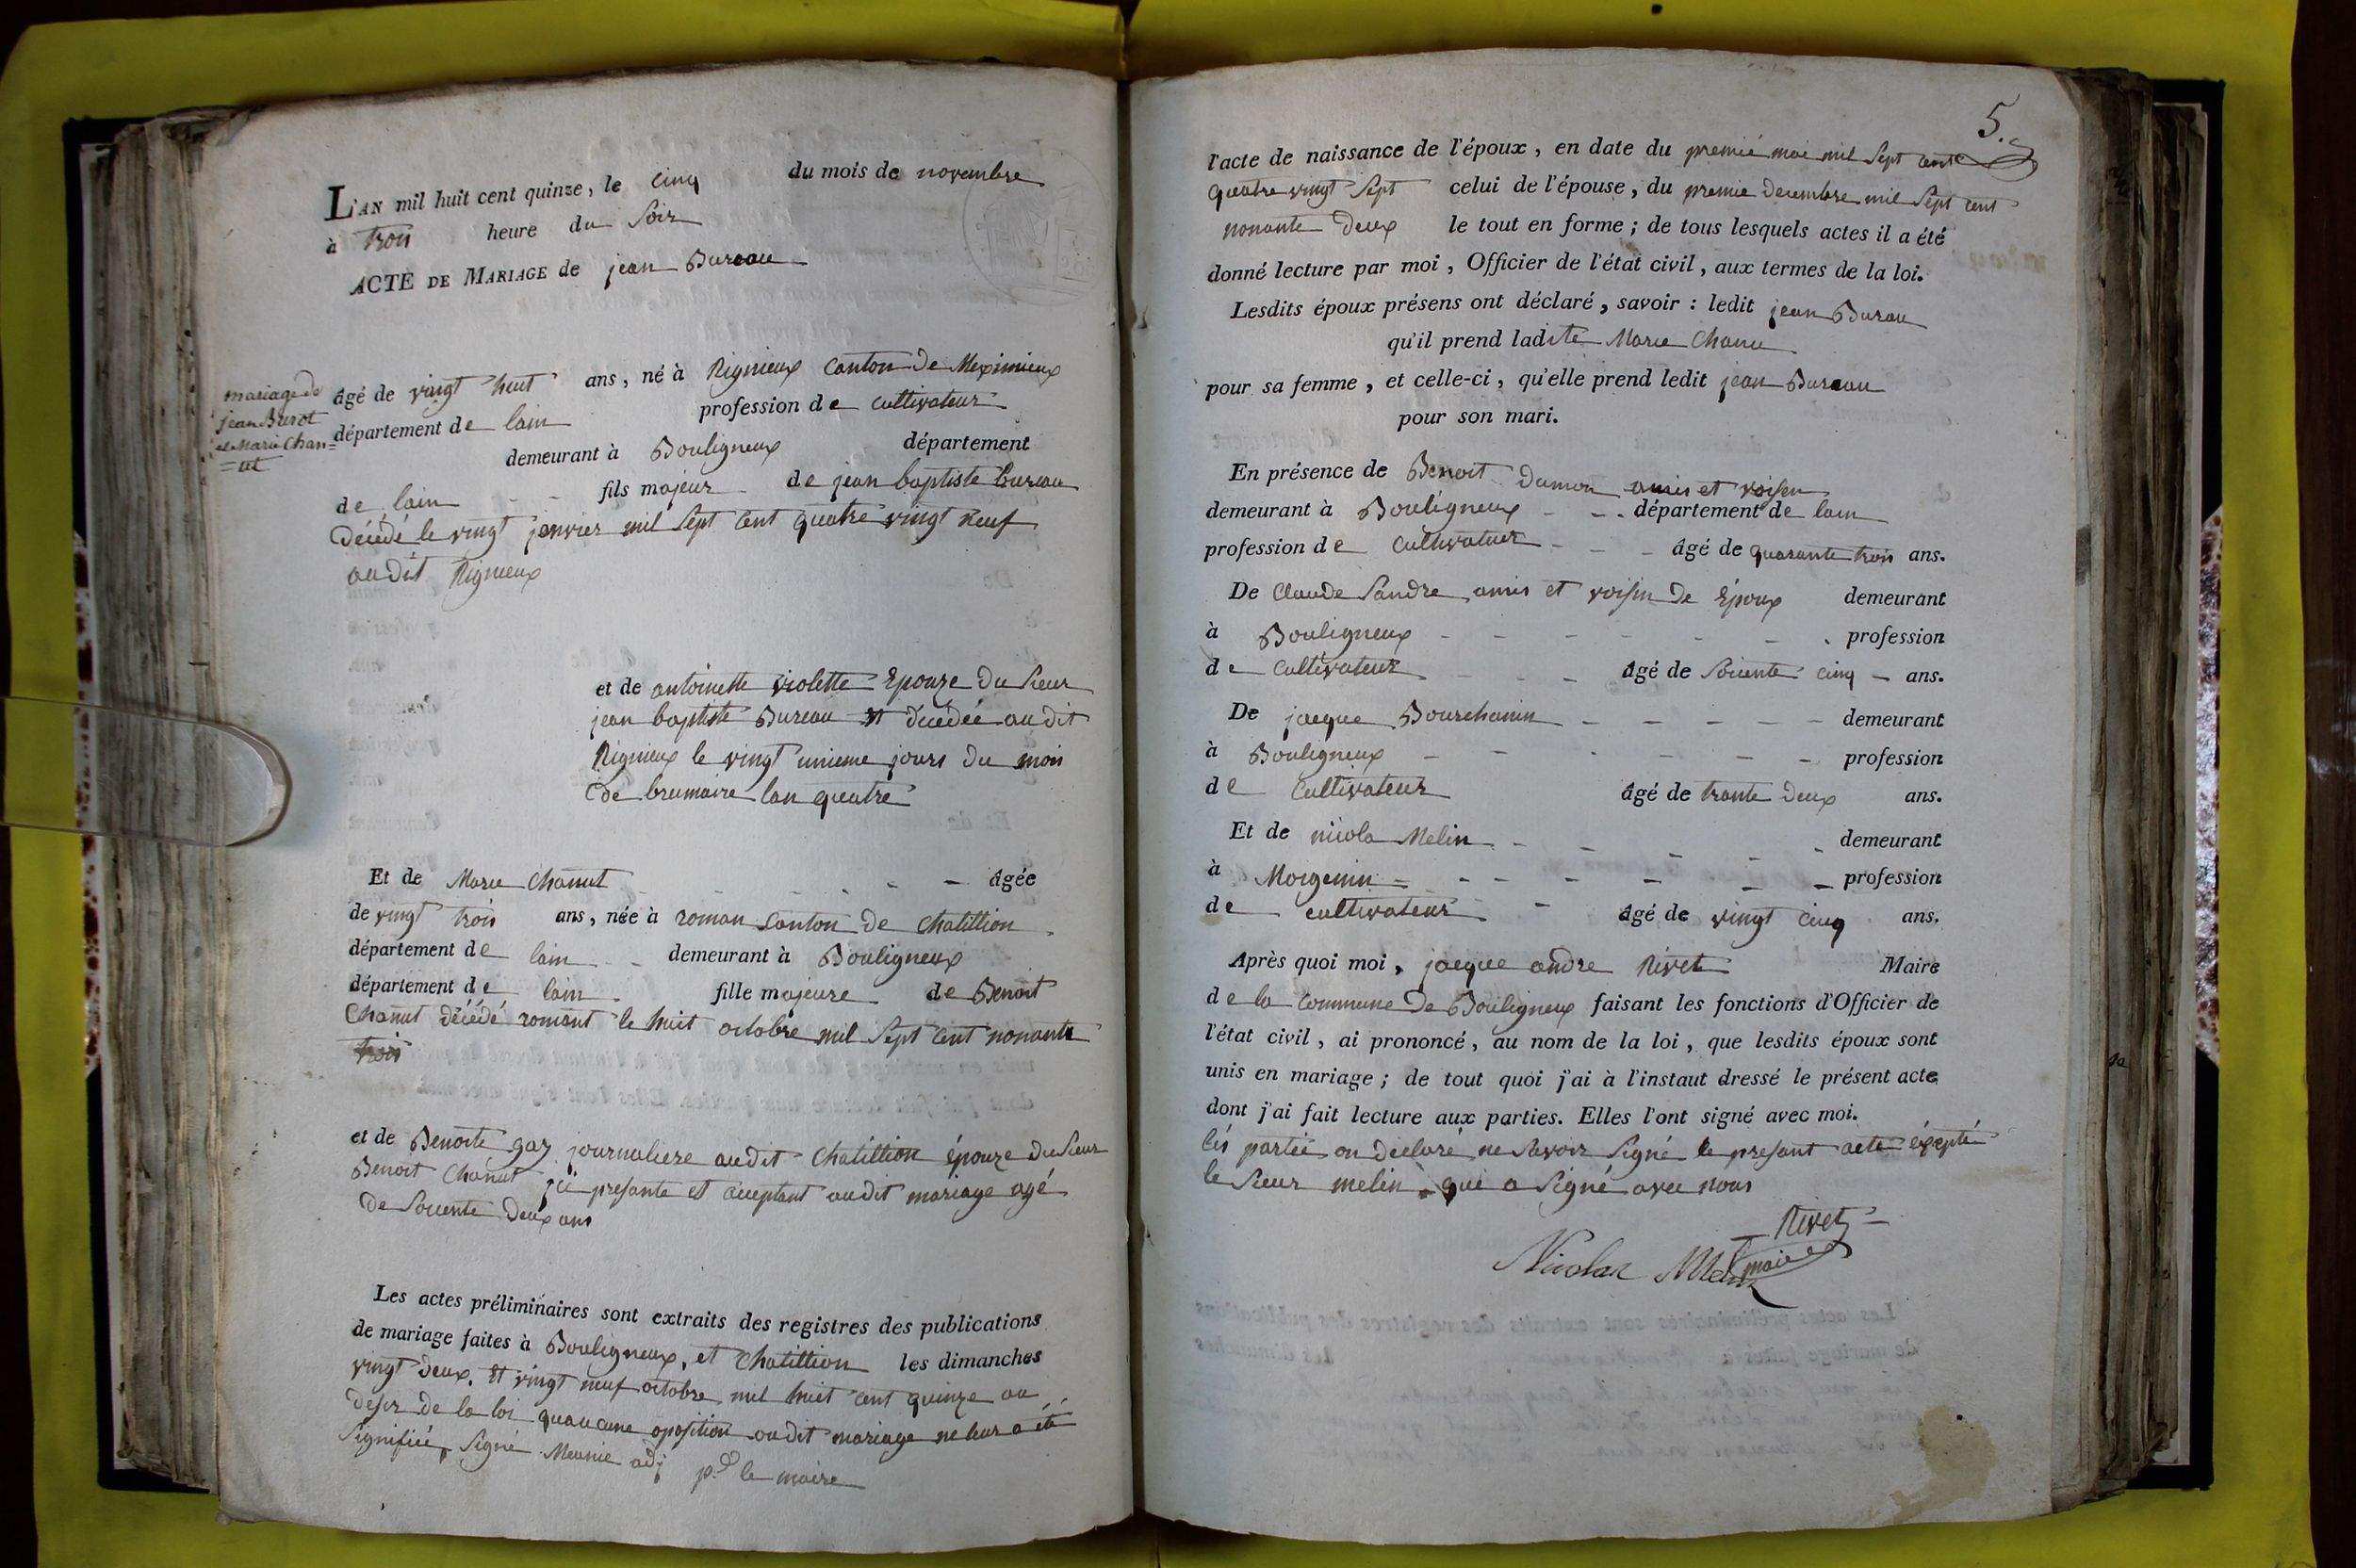 L'AN mil huit cent quinze, le cinq du mois de novembre
à trois heure du Soir
ACTE DE MARIAGE de jean Bureau
mariage de
jean Burot
et Marie Chan=
=ut
âgé de vingt huit ans, né à Rignieux Canton de Meximieux
département de lain profession de cultivateur
demeurant à Bouligneux département
de lain fils majeur de jean baptiste bureau
décédé le vingt janvier mil Sept Cent quatre vingt neuf
audit Rignieux
et de antoinette violette Epouze du Sieur
jean baptiste Bureau et décédée audit
Rignieux le vingt unieme jours du mois
de brumaire lan quatre
Et de Marie Chanut âgée
de vingt trois ans, née à roman Canton de Chatillion
département de lain demeurant à Bouligneux
département de lain fille majeure de Benoit
Chanut décédé romant le huit octobre mil Sept Cent nonante
trois
et de Benoite gay journaliere audit Chatillion épouze du Sieur
Benoit Chanut ici presante et aceptant audit mariage agé
de Soicente deux ans
Les actes préliminaires sont extraits des registres des publications
de mariage faites à Bouligneux, et Chatillion les dimanches
vingt deux, et vingt neuf octobre mil huit cent quinze au
desir de la loi quaucune oposition audit mariage ne leur a été
Signifiée, Signé Meunié adj p.^d le maire
5.
l'acte de naissance de l'époux, en date du premié mai mil Sept cent
quatre vingt Sept celui de l'épouse, du premié decembre mil Sept cent
nonante deux le tout en forme; de tous lesquels actes il a été
donné lecture par moi, Officier de l'état civil, aux termes de la loi.
Lesdits époux présens ont déclaré, savoir : ledit jean Burau
qu'il prend ladite Marie Chanu
pour sa femme, et celle-ci, qu'elle prend ledit jean Bureau
pour son mari.
En présence de Benoit Dumon amis et voisin
demeurant à Bouligneux département de lain
profession de Cultivateur âgé de quarante trois ans.
De Claude Sandre amis et voisin de Epoux demeurant
à Bouligneux profession
de Cultivateur âgé de Soicente cinq ans.
De jacque Bourchanin demeurant
à Bouligneux profession
de Cultivateur âgé de trante deux ans.
Et de nicola Melin demeurant
à Moigenin profession
de cultivateur âgé de vingt cinq ans.
Après quoi moi, jacque andre Rivet Maire
de la Commune De Bouligneux faisant les fonctions d'Officier de
l'état civil, ai prononcé, au nom de la loi, que lesdits époux sont
unis en mariage; de tout quoi j'ai à l'instaut dressé le présent acte
dont j'ai fait lecture aux parties. Elles l'ont signé avec moi.
lés partie on declaré ne Savoir Signé le presant acte éxcepté
le Sieur melin qui a Signé avec nous
Rivet
maire
Nicolas Melin